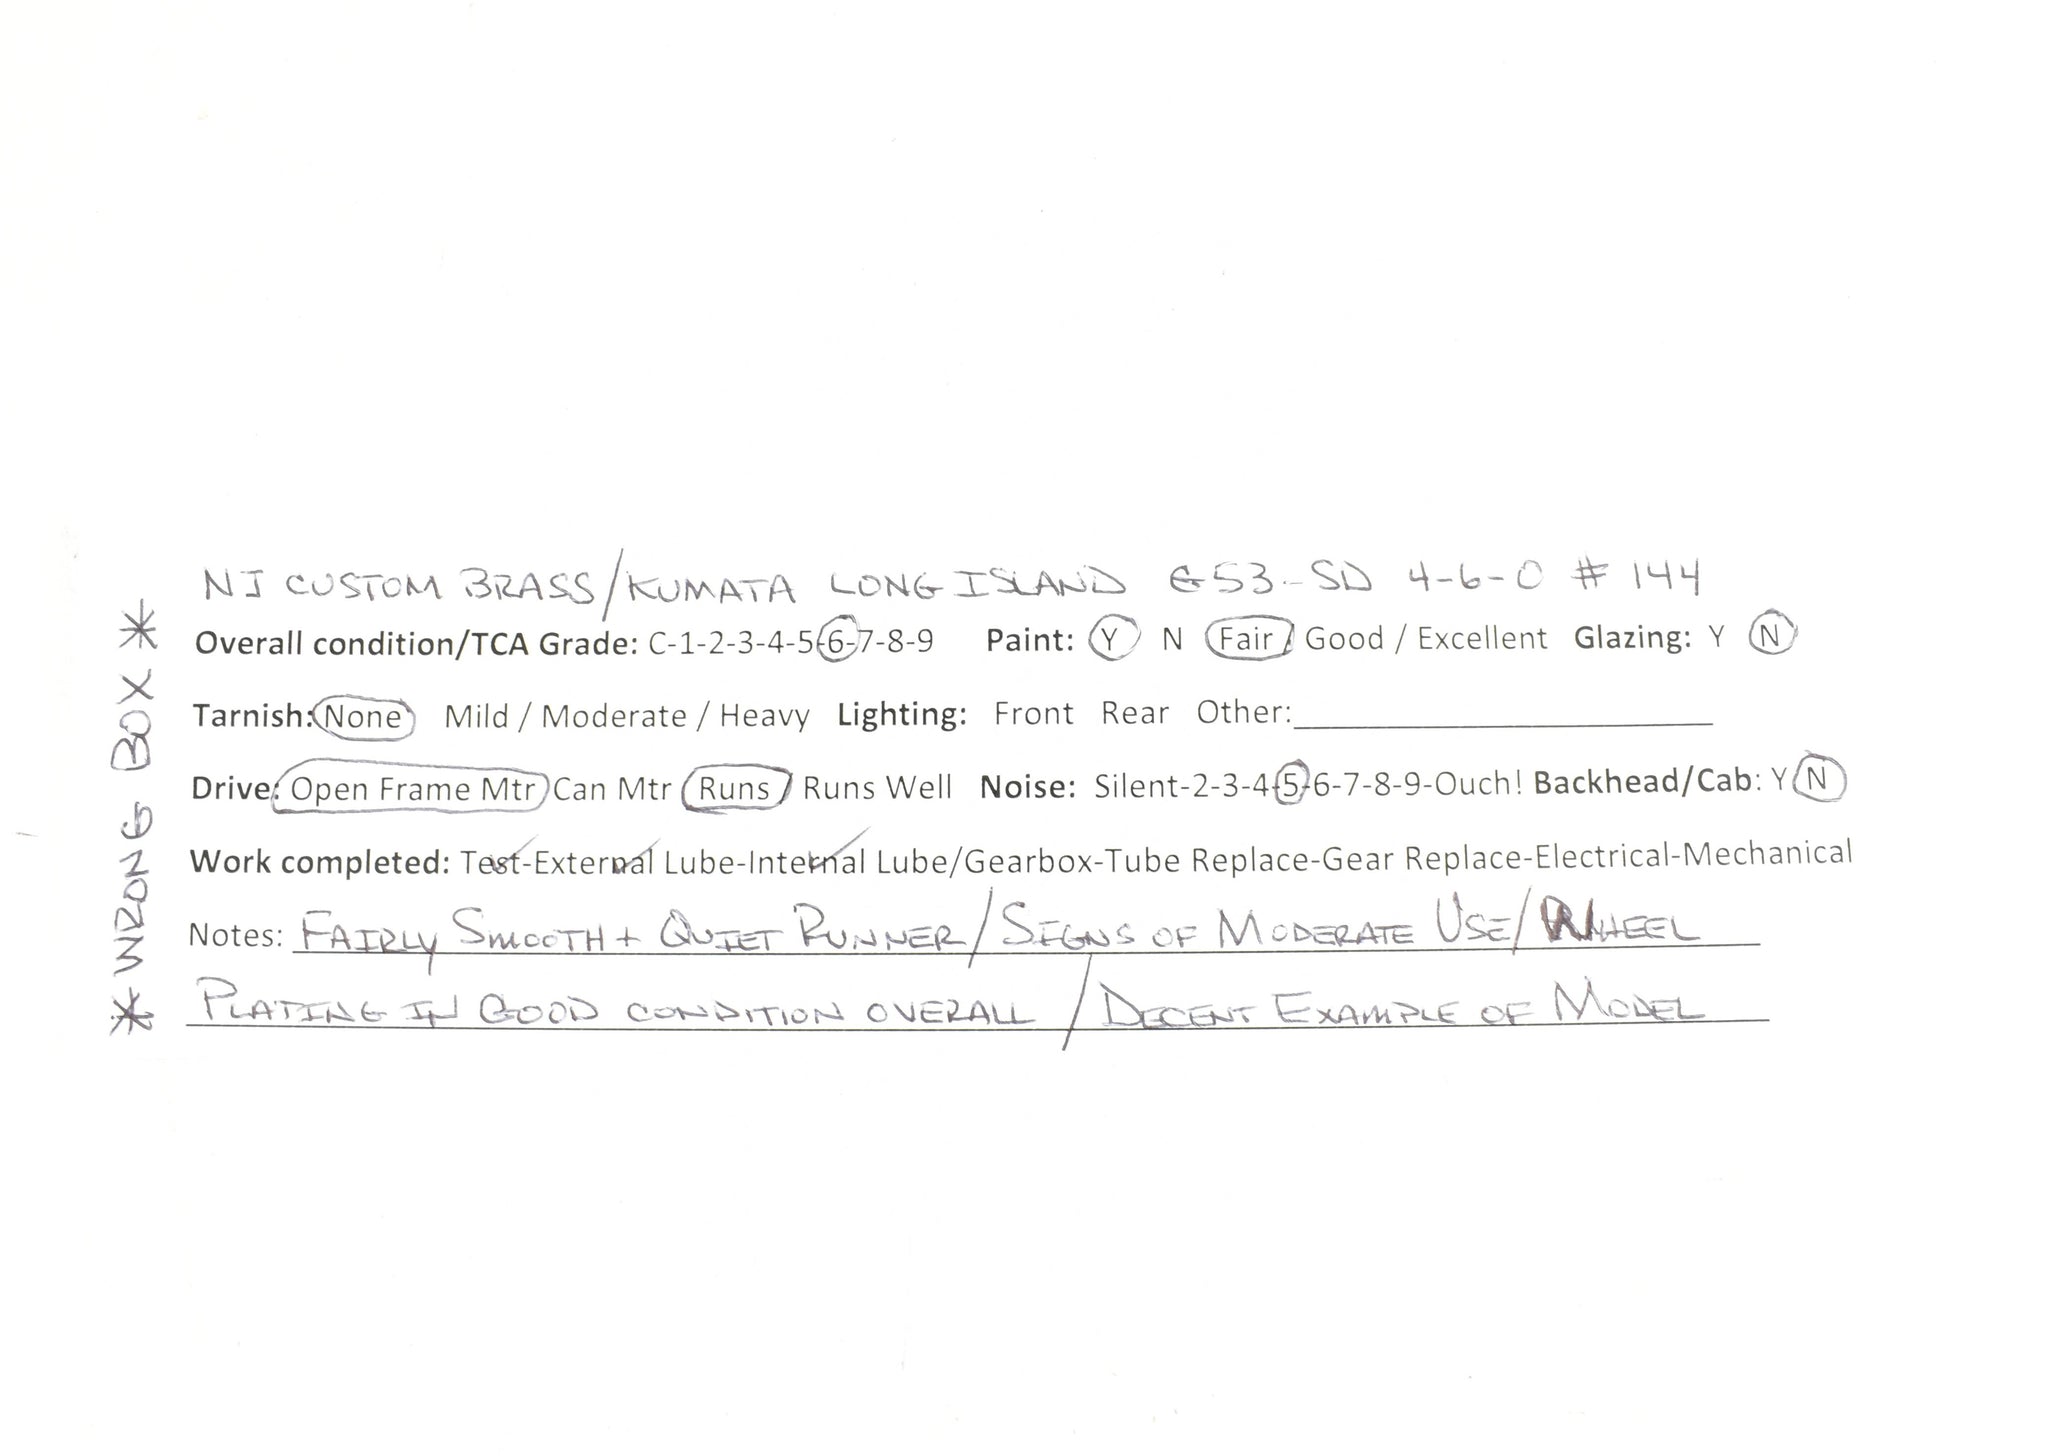 NJ CUSTOM BRASS/KUMATA LONG ISLAND G53-SD 4-6-0 # 144
Overall condition/TCA Grade: C-1-2-3-4-5-6-7-8-9 Paint: Y N Fair / Good / Excellent Glazing: Y N
Tarnish: None Mild / Moderate / Heavy Lighting: Front Rear Other:
Drive: Open Frame Mtr Can Mtr Runs / Runs Well Noise: Silent-2-3-4-5-6-7-8-9-Ouch! Backhead/Cab: Y N
Work completed: Test-External Lube-Internal Lube/Gearbox-Tube Replace-Gear Replace-Electrical-Mechanical
Notes: FAIRLY SMOOTH + QUIET RUNNER / SIGNS OF MODERATE USE / WHEEL
PLATING IN GOOD CONDITION OVERALL / DECENT EXAMPLE OF MODEL
* WRONG BOX *